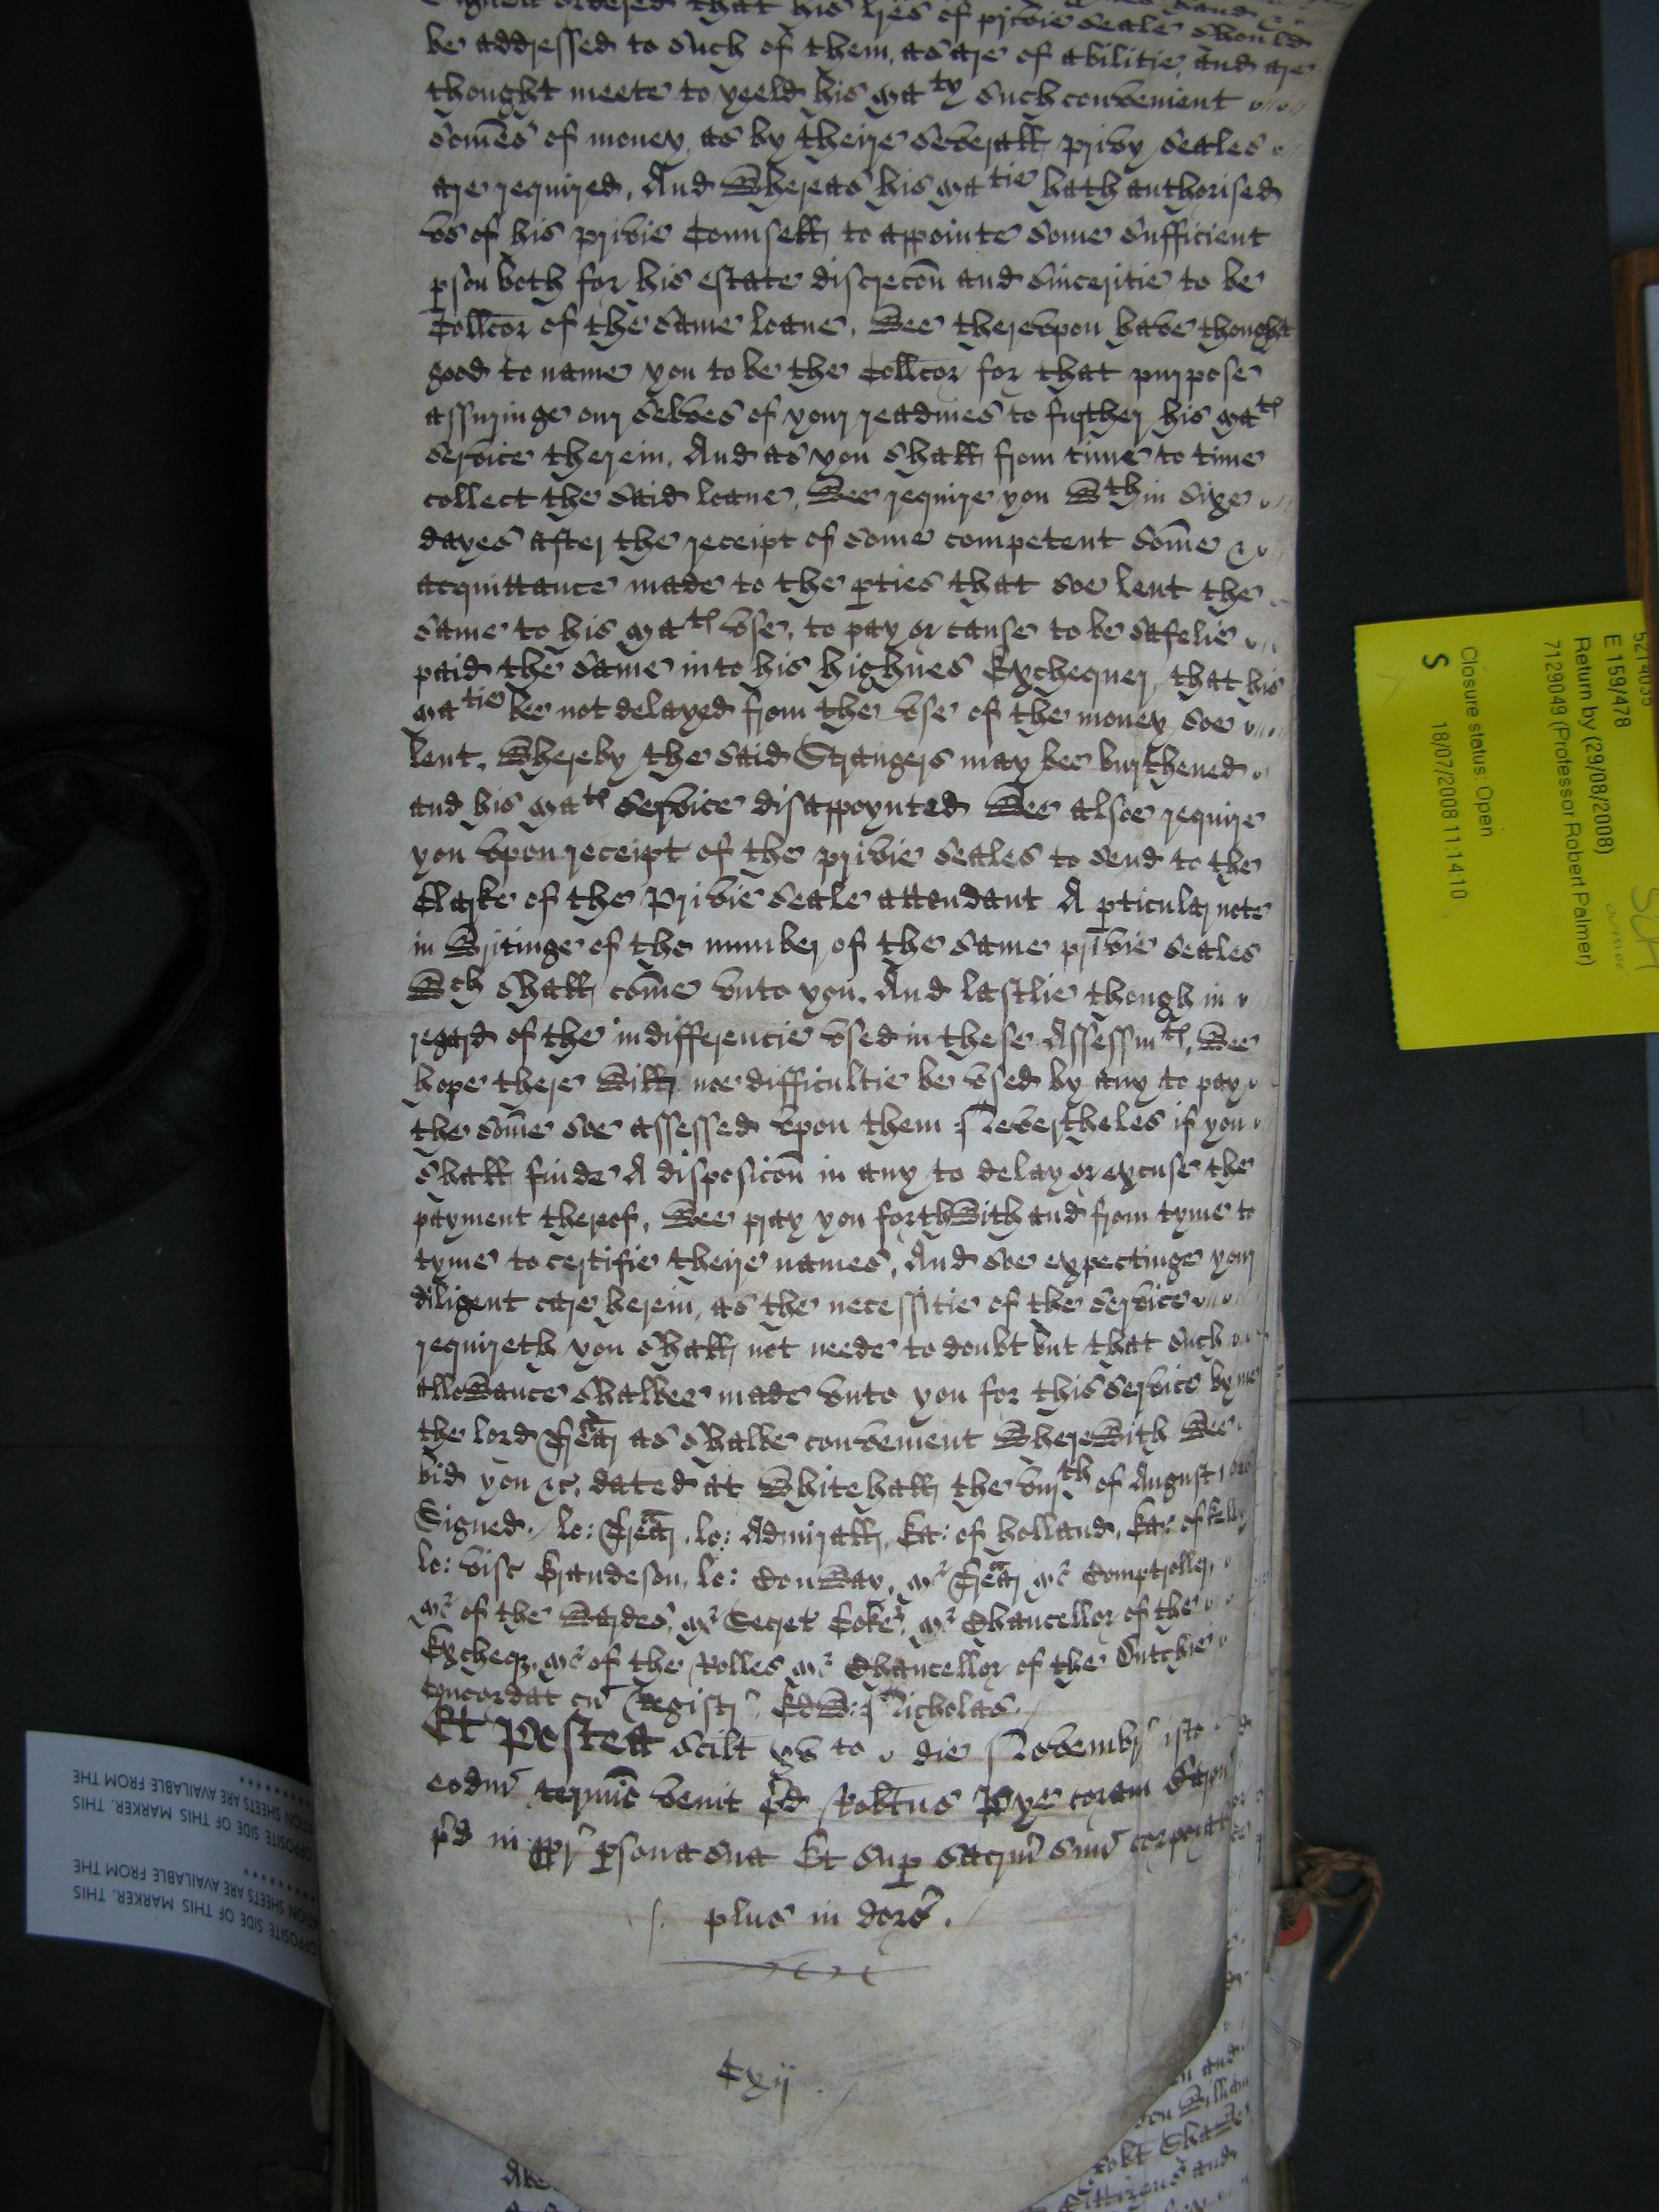 ordered that his lres of privie seale should
be addressed to such of them, as are of abilitie, and are
thought meete to yeeld his Ma^ty such convenient
somes of money, as by theire severall privy seales
are required, And Whereas his Ma^tie hath authorised
vs of his privie Counsell to appointe some sufficient
pson both for his estate discrecon and sinceritie to be
Collcor of the same loane. Wee therevpon have thought
good to name you to be the Collcor for that purpose
assuringe our selves of your readines to further his Ma^ts
service therein, And as you shall from time to time
collect the said loane, Wee require you W^thin sixe
dayes after the receipt of some competent some &
acquittance made to the pties that soe lent the
same to his Ma^ts vse, to pay or cause to be safelie
paid the same into his highnes Exchequer, that his
Ma^tie bee not delayed from the vse of the money soe
lent, Whereby the said Strangers may bee burthened
and his Ma^ts service disappoynted Wee alsoe require
you vpon receipt of the privie seales to send to the
Clarke of the Privie seale attendant A pticular note
in Writinge of the number of the same privie seales
W^ch shall come vnto you. And lastlie though in
regard of the indifferencie vsed in these Assessm^ts, Wee
hope there Will noe difficultie be vsed by any to pay
the some soe assessed vpon them Nevertheles if you
shall finde A disposicon in any to delay or excuse the
payment thereof, Wee pray you forthWith and from tyme to
tyme to certifie theire names, And soe expectinge your
diligent care herein, as the necessitie of the service
requireth you shall not neede to doubt but that such
alloWance shalbee made vnto you for this service by me
the lord Trear as shalbe convenient WhereWith Wee
bid you &c, dated at Whitehall the viij^th of August
Signed. / lo: Trear, lo: Admirall, Ea: of holland, Ea: of Kelly
lo: visc Grandeson, lo: ConWay, Mr Trear Mr Comptroller,
Mr of the Wardes, Mr Secret Coke, Mr Chancellor of the
Excheqr, Mr of the Rolles Mr Chancellor of the Dutchie
concordat cu Registr, EdW: Nicholas.
Et Postea scilt xv to die Novembr isto
eodm termio venit pd Robtus Pye coram Baron
pd in ppr psona sua Et sup sacrm suu corporal
plus in dors.
Cxij
E 159/478
Return by (29/08/2008)
7129049 (Professor Robert Palmer)
Closure status: Open
S 18/07/2008 11:14:10
OPPOSITE SIDE OF THIS MARKER. THIS
SHEETS ARE AVAILABLE FROM THE
OPPOSITE SIDE OF THIS MARKER. THIS
SHEETS ARE AVAILABLE FROM THE